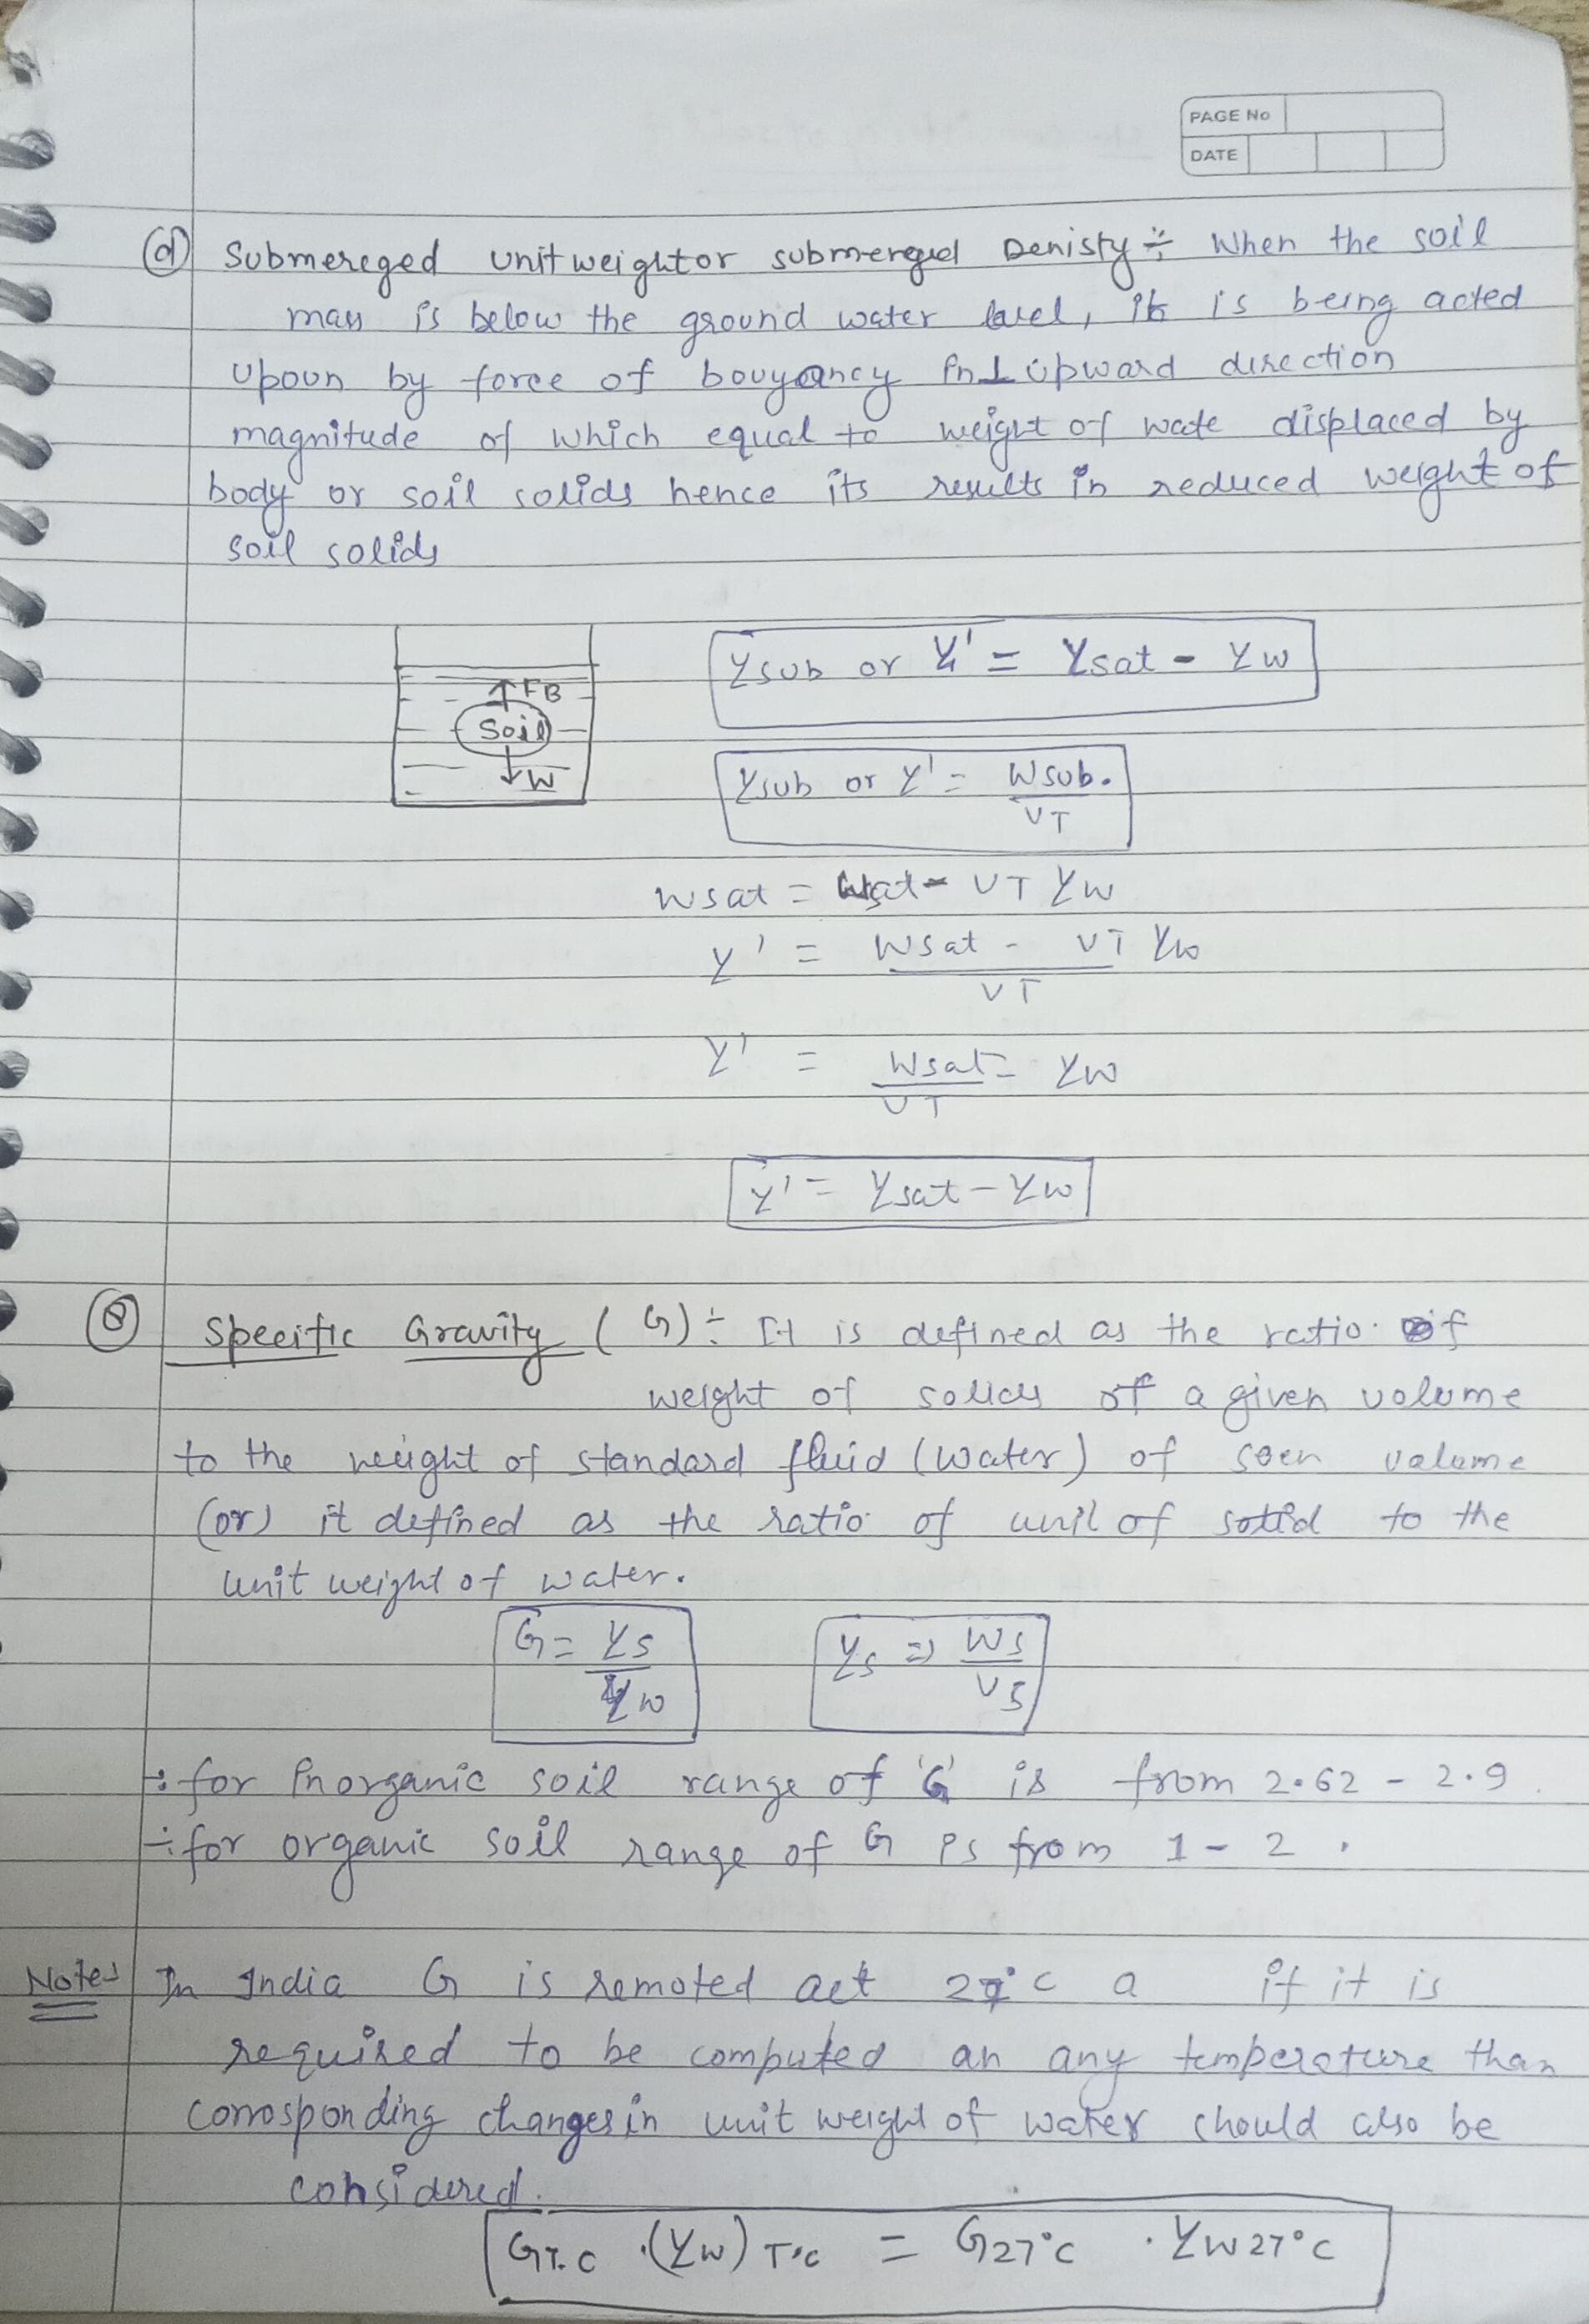 PAGE No
DATE
(d) Submereged unit weight or submerged Denisty ÷ When the soil
mass is below the ground water level, it is being acted
upoun by force of bouyancy in upward direction
magnitude of which equal to weight of wate displaced by
body or soil solids hence its results in reduced weight of
soil solids
γsub or γ' = γsat - γw
↑FB
Soil
↓W
γsub or γ' = Wsub. / VT
Wsat = Wsat - VT γw
γ' = Wsat - VT γw / VT
γ' = Wsat / VT - γw
γ' = γsat - γw
Specific Gravity (G) ÷ It is defined as the ratio of
weight of solids of a given volume
to the weight of standard fluid (water) of volume
(or) it defined as the ratio of unit of solid to the
unit weight of water.
G = γs / γw
γs ⇒ Ws / Vs
÷ for inorganic soil range of 'G' is from 2.62 - 2.9.
÷ for organic soil range of G is from 1 - 2.
Notes In India G is remoted act 27°C a if it is
required to be computed an any temperature than
corrosponding changes in unit weight of water should also be
considered.
GT°C . (γw)T°C = G27°C . γw27°C